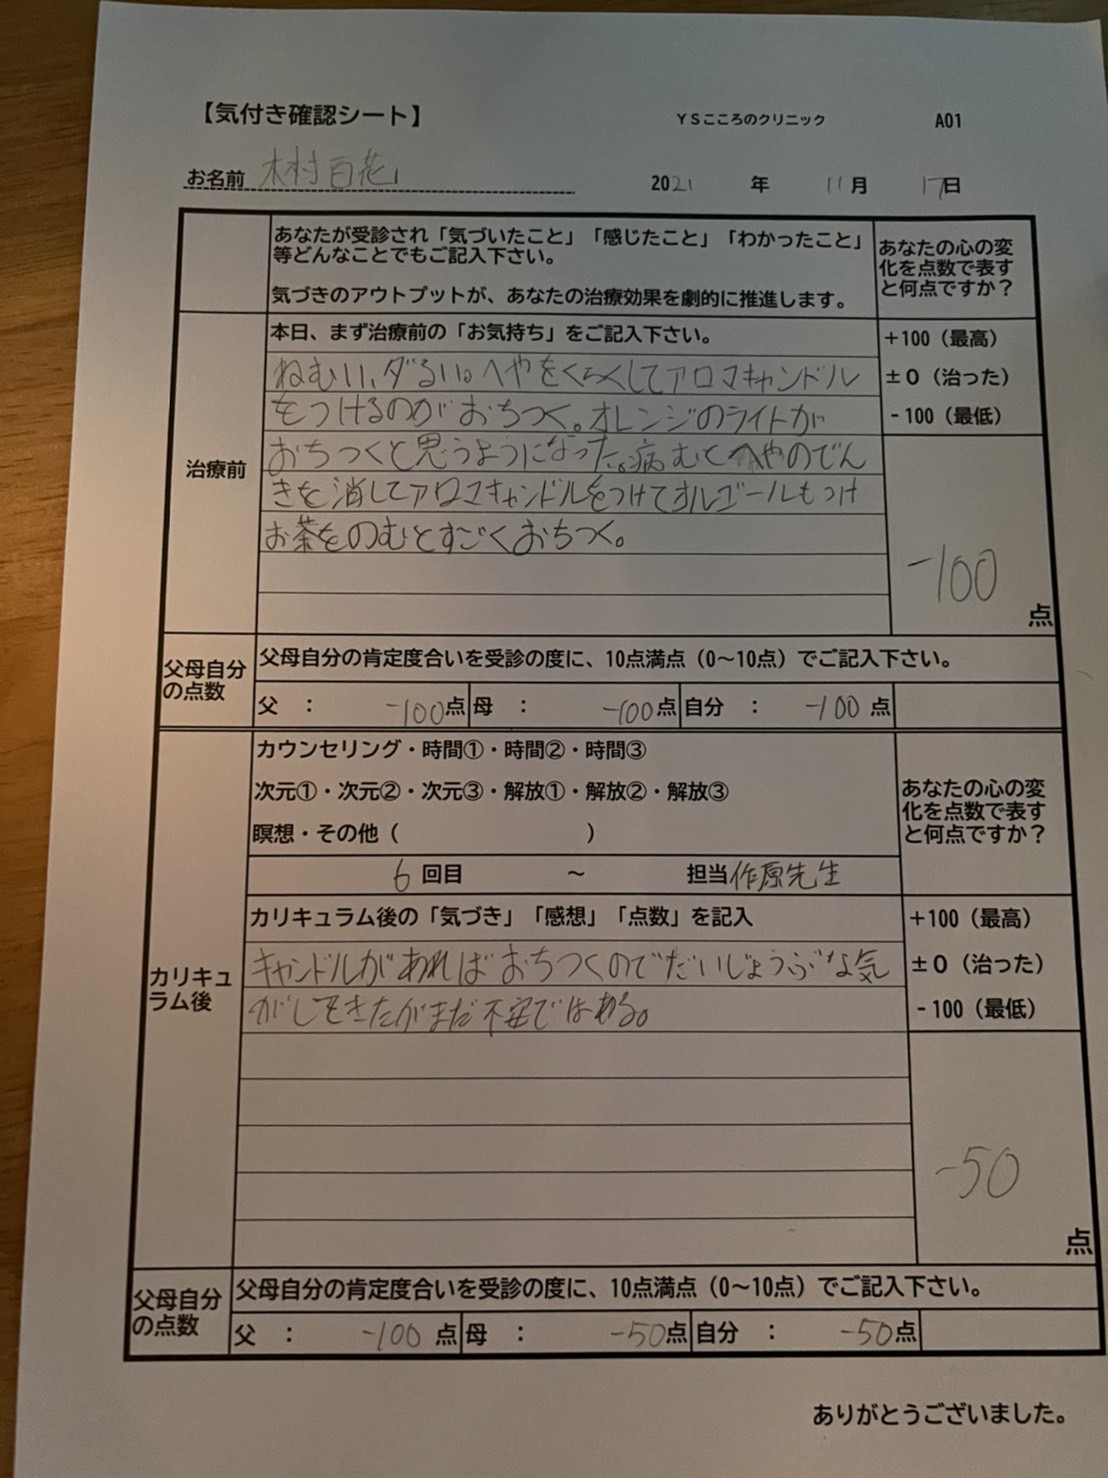 【気付き確認シート】
YSこころのクリニック
A01
お名前 木村百花
2021年 11月 17日
あなたが受診され「気づいたこと」「感じたこと」「わかったこと」
等どんなことでもご記入下さい。
気づきのアウトプットが、あなたの治療効果を劇的に推進します。
あなたの心の変
化を点数で表す
と何点ですか？
治療前
本日、まず治療前の「お気持ち」をご記入下さい。
ねむい、ダるい。へやをくらくしてアロマキャンドル
をつけるのがおちつく。オレンジのライトが
おちつくと思うようになった。病むとへやのでん
きを消してアロマキャンドルをつけてオルゴールもつけ
お茶をのむとすごくおちつく。
+100（最高）
±0（治った）
-100（最低）
-100点
父母自分
の点数
父母自分の肯定度合いを受診の度に、10点満点（0〜10点）でご記入下さい。
父 ： -100点 母 ： -100点 自分 ： -100点
カウンセリング・時間①・時間②・時間③
次元①・次元②・次元③・解放①・解放②・解放③
瞑想・その他（ ）
6回目 〜 担当作原先生
あなたの心の変
化を点数で表す
と何点ですか？
カリキュ
ラム後
カリキュラム後の「気づき」「感想」「点数」を記入
キャンドルがあればおちつくのでだいじょうぶな気
がしてきたがまだ不安ではある。
+100（最高）
±0（治った）
-100（最低）
-50点
父母自分
の点数
父母自分の肯定度合いを受診の度に、10点満点（0〜10点）でご記入下さい。
父 ： -100点 母 ： -50点 自分 ： -50点
ありがとうございました。